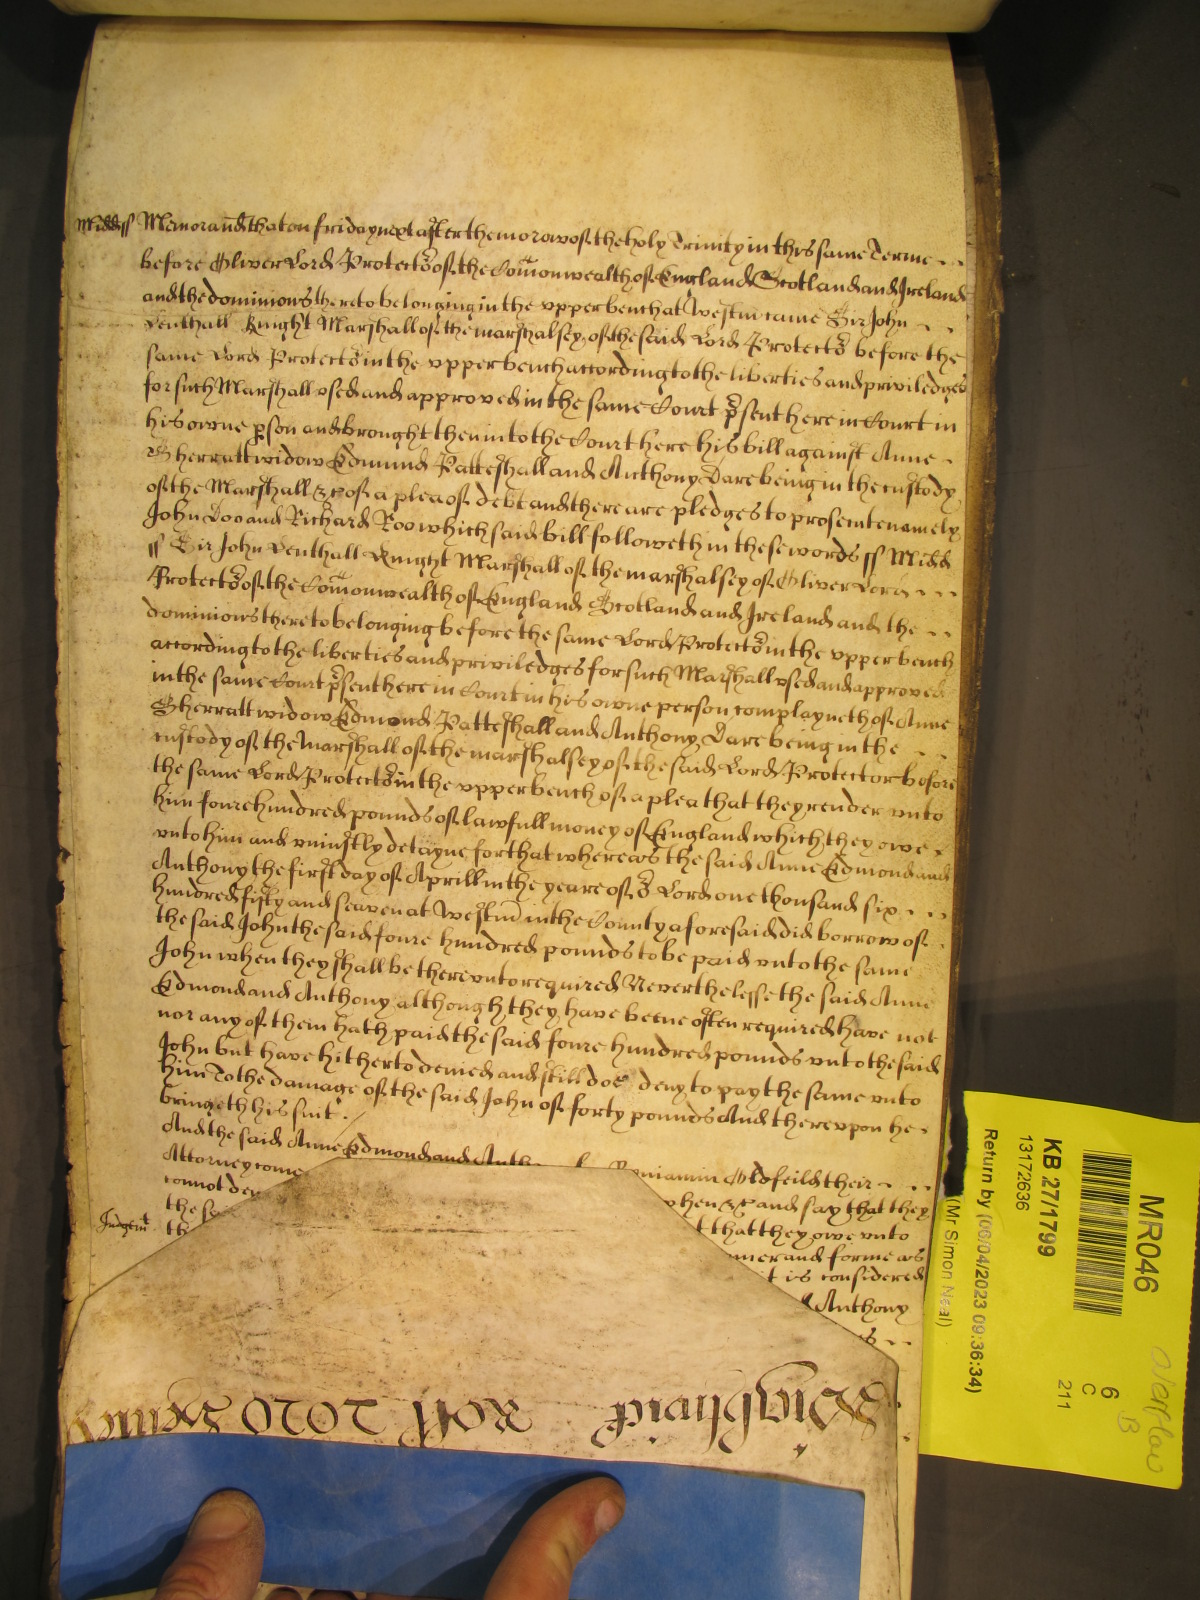 Midd ss Memorand that on friday next after the morow of the holy Trinity in this same Terme
before Oliver Lord Protector of the Comonwealth of England Scotland and Ireland
and the dominions thereto belonging in the vpper bench at Westm came Sir John
Lenthall Knight Marshall of the marshalsey of the said Lord Protector before the
same Lord Protector in the vpper bench according to the liberties and priviledges
for such Marshall vsed and approved in the same Court psent here in Court in
his owne pson and brought then into the Court here his bill against Anne
Sherratt widow Edmund Patteshall and Anthony Dare being in the custody
of the Marshall &c of a plea of debt and there are pledges to prosecute namely
John Doo and Richard Roo which said bill followeth in these words ss Midd
ss Sir John Lenthall Knight Marshall of the marshalsey of Oliver Lord
Protector of the Comonwealth of England Scotland and Ireland and the
dominions thereto belonging before the same Lord Protector in the vpper bench
according to the liberties and priviledges for such Marshall vsed and approved
in the same Court psent here in Court in his owne person complayneth of Anne
Sherratt widow Edmond Patteshall and Anthony Dare being in the
custody of the Marshall of the marshalsey of the said Lord Protector before
the same Lord Protector in the vpper bench of a plea that they render vnto
him foure hundred pounds of lawfull money of England which they owe
vnto him and vniustly detayne for that whereas the said Anne Edmond and
Anthony the first day of Aprill in the yeare of or Lord one thousand six
hundred fifty and seaven at Westm in the County aforesaid did borrow of
the said John the said foure hundred pounds to be paid vnto the same
John when they shall be therevnto required Neverthelesse the said Anne
Edmond and Anthony although they have beene often required have not
nor any of them hath paid the said foure hundred pounds vnto the said
John but have hitherto denied and still doe deny to pay the same vnto
him To the damage of the said John of forty pounds And therevpon he
bringeth his suit
And the said Anne Edmond and Anth Beniamin Oldfeild their
Attorney come when &c and say that they
cannot den t that they owe vnto
the sa nner and forme as
Judgemt th t is considered
Anthony
Roll 2020
MR046
KB 27/1799
13172636
Return by (06/04/2023 09:36:34)
(Mr Simon Neal)
6
C
211
Overflow
B